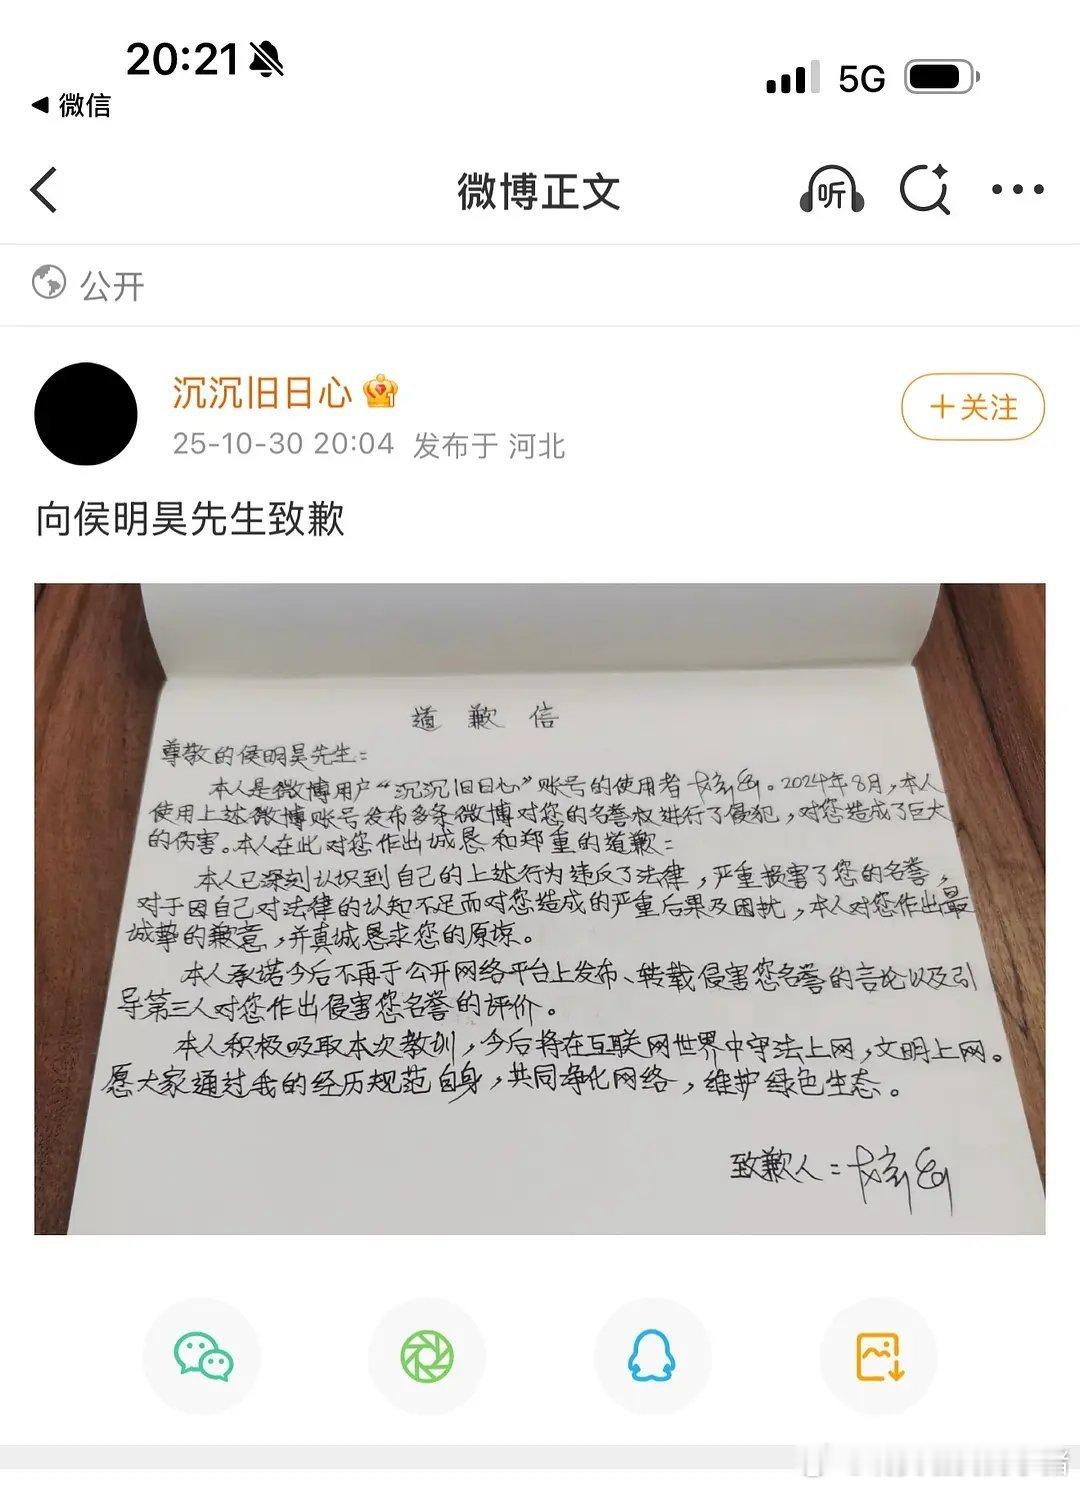 20:21
5G
微信
微博正文
听
公开
沉沉旧日心
+关注
25-10-30 20:04 发布于 河北
向侯明昊先生致歉
道歉信
尊敬的侯明昊先生:
本人是微博用户“沉沉旧日心”账号的使用者。2024年8月,本人
使用上述微博账号发布多条微博对您的名誉权进行了侵犯,对您造成了巨大
的伤害。本人在此对您作出诚恳和郑重的道歉:
本人已深刻认识到自己的上述行为违反了法律,严重损害了您的名誉,
对于因自己对法律的认知不足而对您造成的严重后果及困扰,本人对您作出最
诚挚的歉意,并真诚恳求您的原谅。
本人承诺今后不再于公开网络平台上发布、转载侵害您名誉的言论以及引
导第三人对您作出侵害您名誉的评价。
本人积极吸取本次教训,今后将在互联网世界中守法上网,文明上网。
愿大家通过我的经历规范自身,共同净化网络,维护绿色生态。
致歉人: